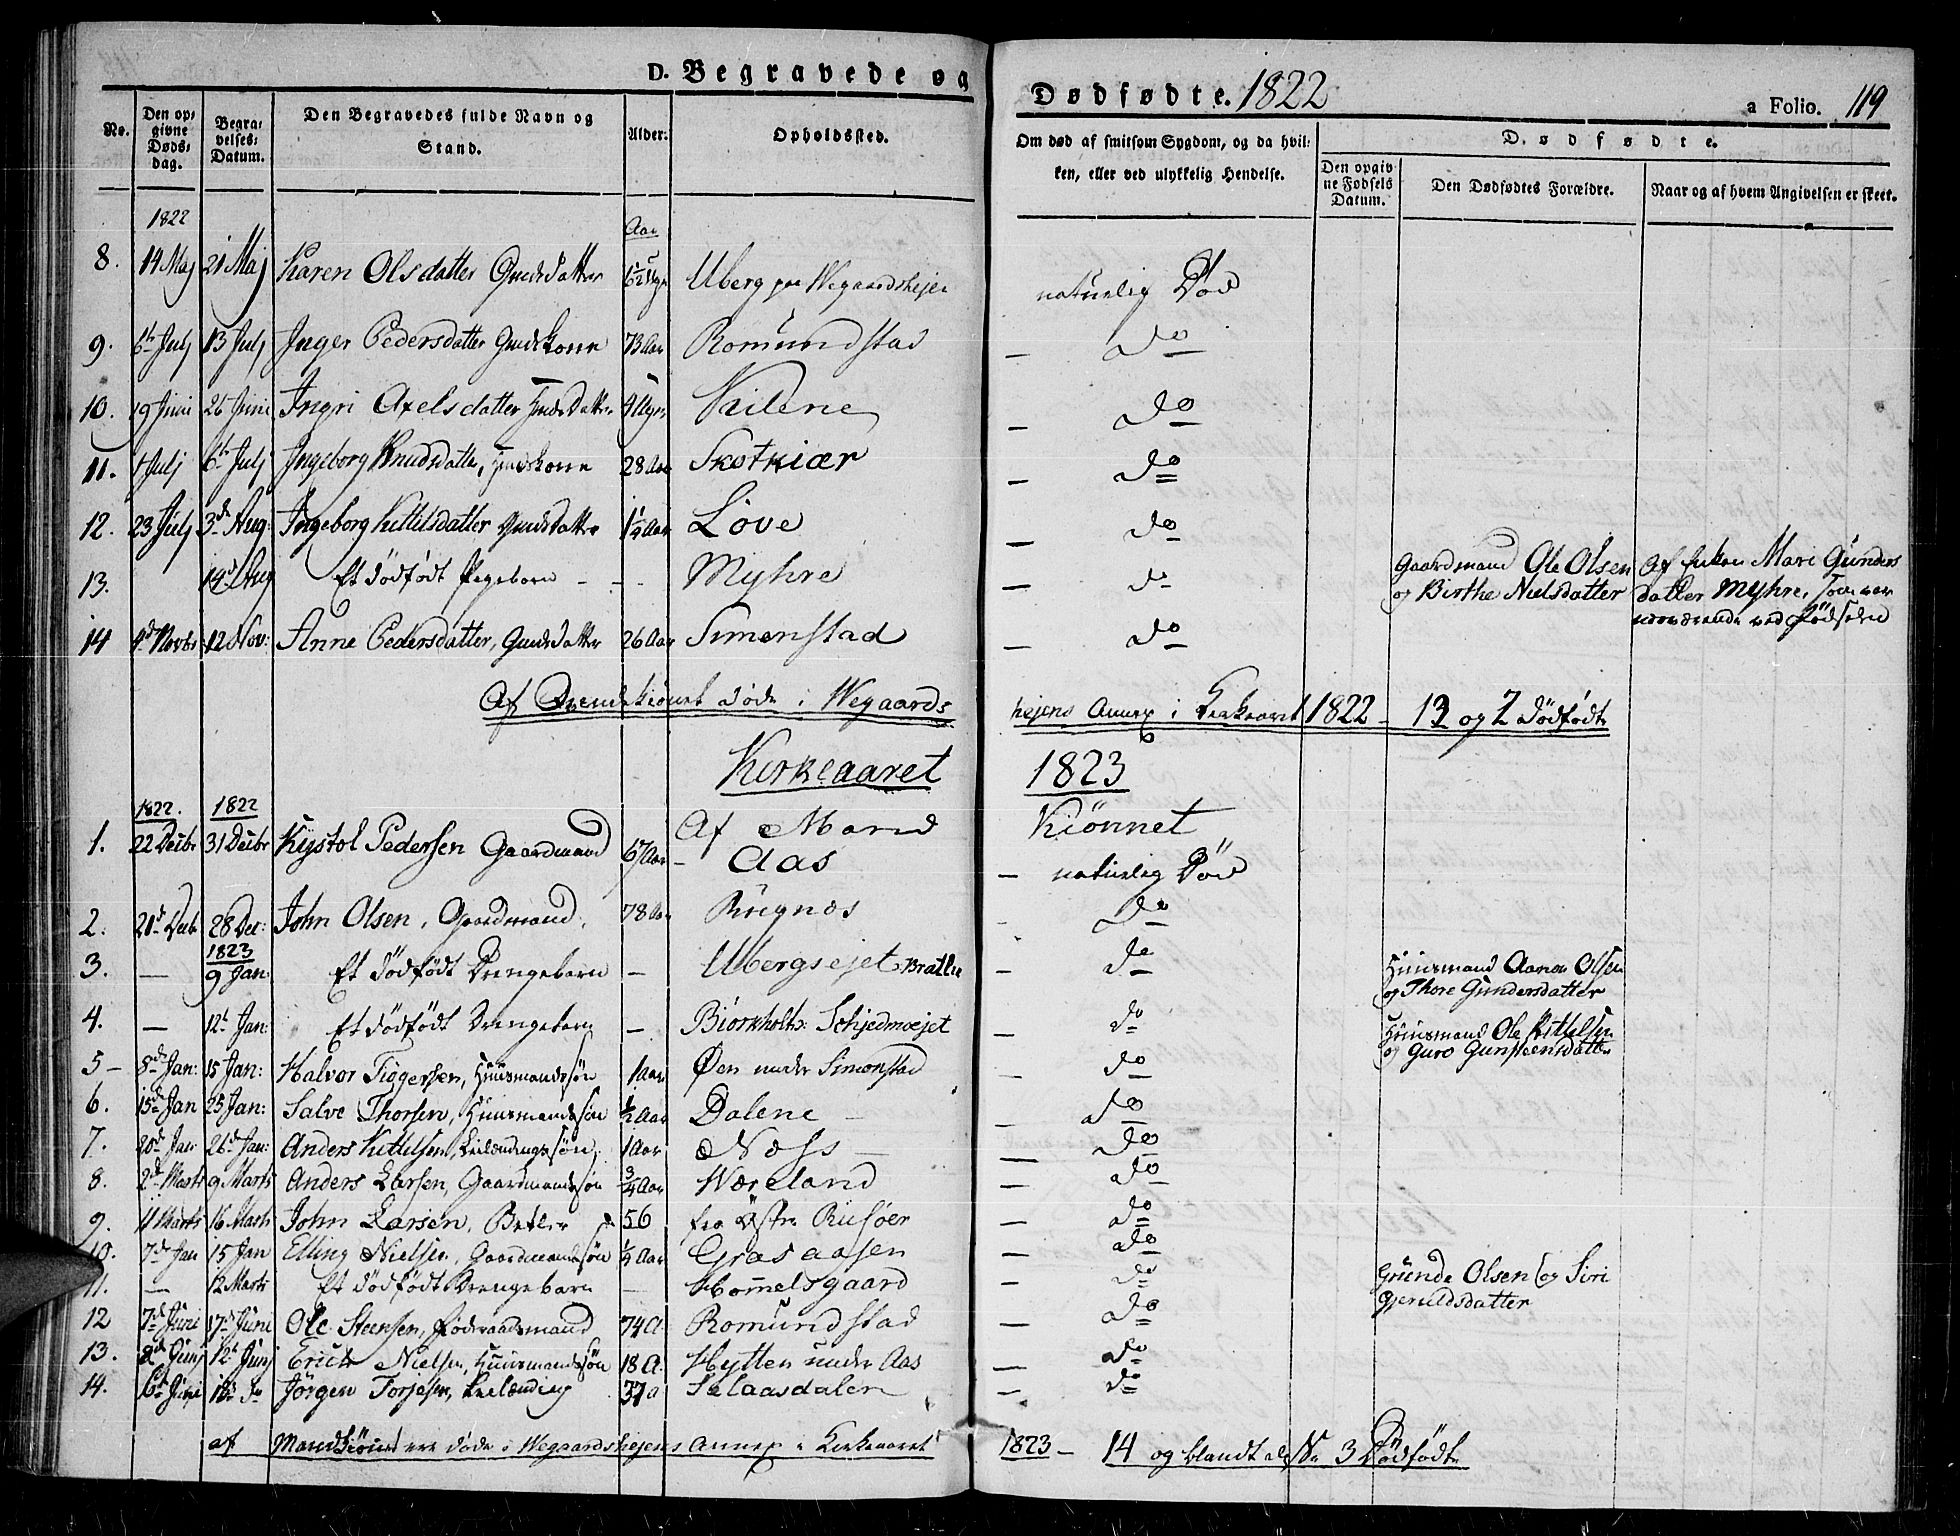 D. Begravede og Dødfødte. 1822 a Folio. 119
No. Den opgivne Dødsdag. Begravelses-Datum. Den Begravedes fulde Navn og Stand. Alder. Opholdssted. Om død af smitsom Sygdom, og da hvilken, eller ved ulykkelig Hendelse. Dødfødte. Den opgivne Fødsels Datum. Den Dødfødtes Forældre. Naar og af hvem Angivelsen er skeet.
1822 Aar
8. 14 Maj 21 Maj Karen Olsdatter Gmds datter Uberg paa Wegaardshejen naturlig Död
9. 6te Julj 13 Julj Inger Pedersdatter Gmdskone 73 Aar Romundstad — do
10. 19 Juni 26 Juni Ingri Axelsdatter Gmds Datter 9 Uger Vailene — do
11. 1 Julj 6te Julj Ingeborg Knudsdatter, Gmdskone 28 Aar Skotkiær — do
12. 23 Julj 3de Aug: Ingeborg Kittelsdatter Gmds Datter 1½ Aar Löve — do
13. 19de Aug Et dödfödt Pigebarn - - Myhre — do Gaardmand Ole Olsen og Birthe Nielsdatter Af Enken Mari Gunders datter Myhre, som var nærværende ved Födselen
14 4de Novbr 12 Nov: Anne Pedersdatter, Gmds datter 26 Aar Simonstad — do
Af Qvendekiönnet döde i Wegaards hejens Annex i Kirkeaaret 1822 — 13 og 2 dödfödte
Kirkeaaret 1823
Af Mand Kiönnet
1822. 1822
1. 22 Decbr 31 Decbr Kystol Pedersen Gaardmand 67 Aar — Aas — naturlig Död
2. 21de Decb 28 Dec: John Olsen, Gaardmand. 78 Aar Rugnæs do
1823
3. — 9 Jan: Et dödfödt Drengebarn — Ubergsejet Bratlie — do Huusmand Aanon Olsen og Thore Gundersdatter
4. — 12te Jan: Et dödfödt Drengebarn — Biorkholt: Schjedmoejet — do Huusmand Ole Kittelsen og Guro Gunsteensdatter
5 — 8de Jan: 15 Jan: Halvor Tiögersen, Huusmandssön 1 Aar Öen under Simonstad — do
6. 15de Jan 25 Jan: Salve Thorsen, Huusmandssön ½ Aar Dalene — — do
7. 20de Jan: 26de Jan: Anders Kittelsen, Leilændingssön. 1 Aar Næss — — do
8. 2de Marts 9 Marts Anders Larsen, Gaardmandssön ¾ Aar Wæreland — do
9. 11 Marts 16 Marts John Larsen, Betler 56 fra Östre Riisöer — do
10. 7de Jan 15 Jan Elling Nielsen, Gaardmandssön ½ Aar Grasaasen — do
11. — 12 Marts Et dödfödt Drengebarn — Hommelsgaard — do Gunde Olsen og Siri Gjeruldsdatter
12 7de Juni 17de Juni Ole Steensen, Föderaadsmand 74 A. Romundstad — do
13. 2de Junj 12te Junj Erich Nielsen, Huusmandssön 18 A. Hytten under Aas — do
14. 6te Juni 18de do Jörgen Torjesen, Leilænding 37 a Selaasdalen — do
af Mandkiönnet ere döde i Wegaardshejens Annex i Kirkeaaret 1823 — 14 og blandt disse 3 Dödfödte